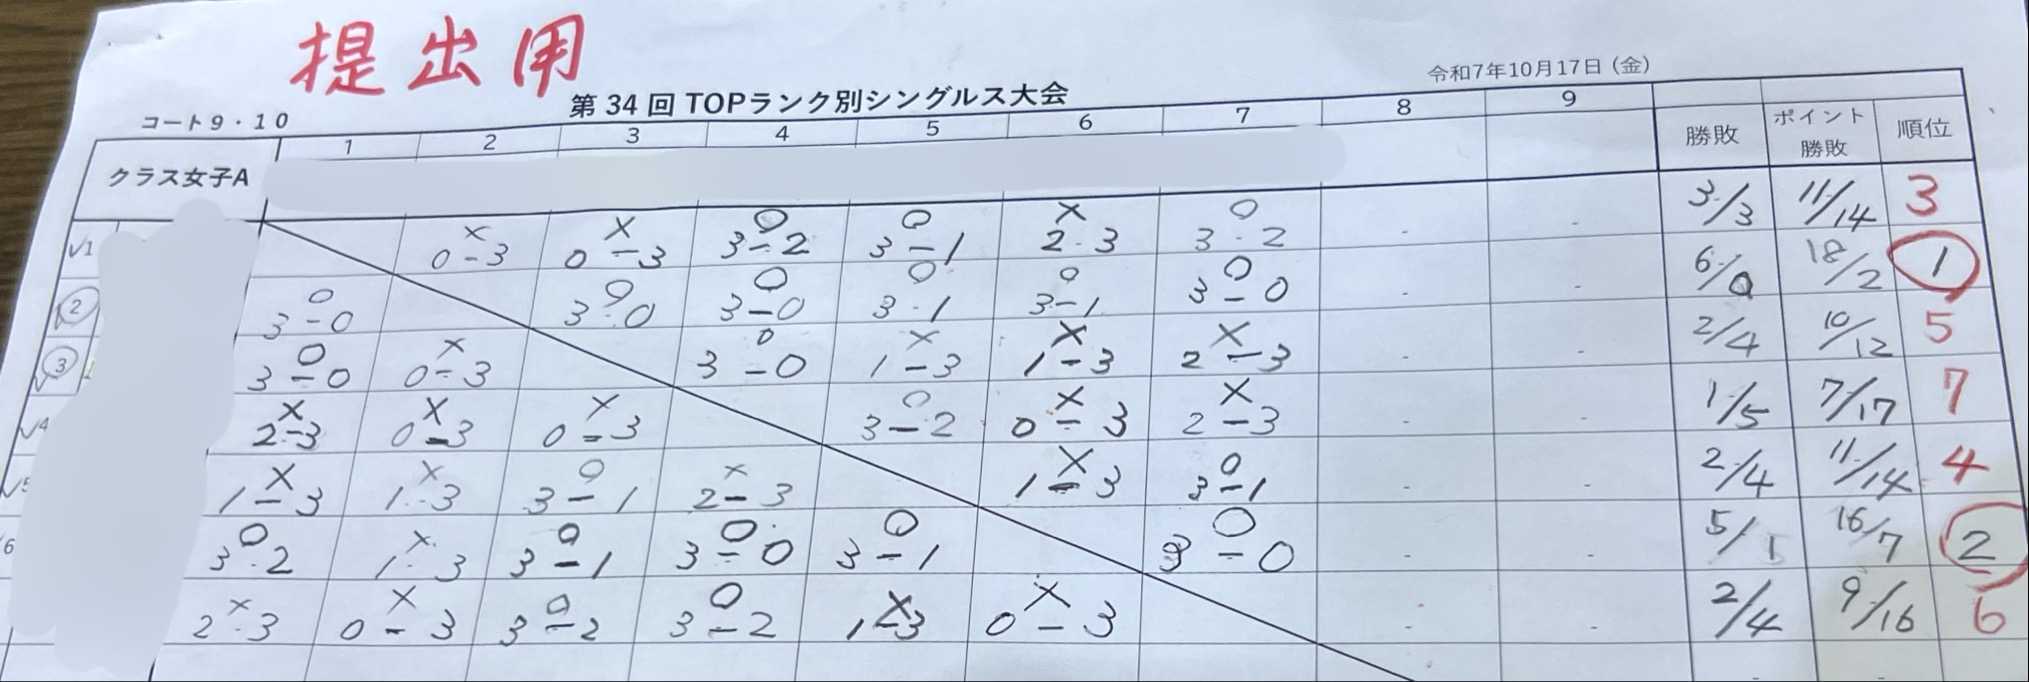 提出用
令和7年10月17日（金）
第34回 TOPランク別シングルス大会
コート9・10
1 2 3 4 5 6 7 8 9 勝敗 ポイント勝敗 順位
クラス女子A
✓1 × 0-3 × 0-3 ○ 3-2 ○ 3-1 × 2-3 ○ 3-2 - - 3/3 11/14 3
2 ○ 3-0 ○ 3-0 ○ 3-0 ○ 3-1 ○ 3-1 ○ 3-0 - - 6/0 18/2 1
3 ○ 3-0 × 0-3 ○ 3-0 × 1-3 × 1-3 × 2-3 - - 2/4 10/12 5
✓4 × 2-3 × 0-3 × 0-3 ○ 3-2 × 0-3 × 2-3 - - 1/5 7/17 7
✓5 × 1-3 × 1-3 ○ 3-1 × 2-3 × 1-3 ○ 3-1 - - 2/4 11/14 4
6 ○ 3-2 × 1-3 ○ 3-1 ○ 3-0 ○ 3-1 ○ 3-0 - - 5/1 16/7 2
× 2-3 × 0-3 ○ 3-2 ○ 3-2 × 1-3 × 0-3 - - 2/4 9/16 6